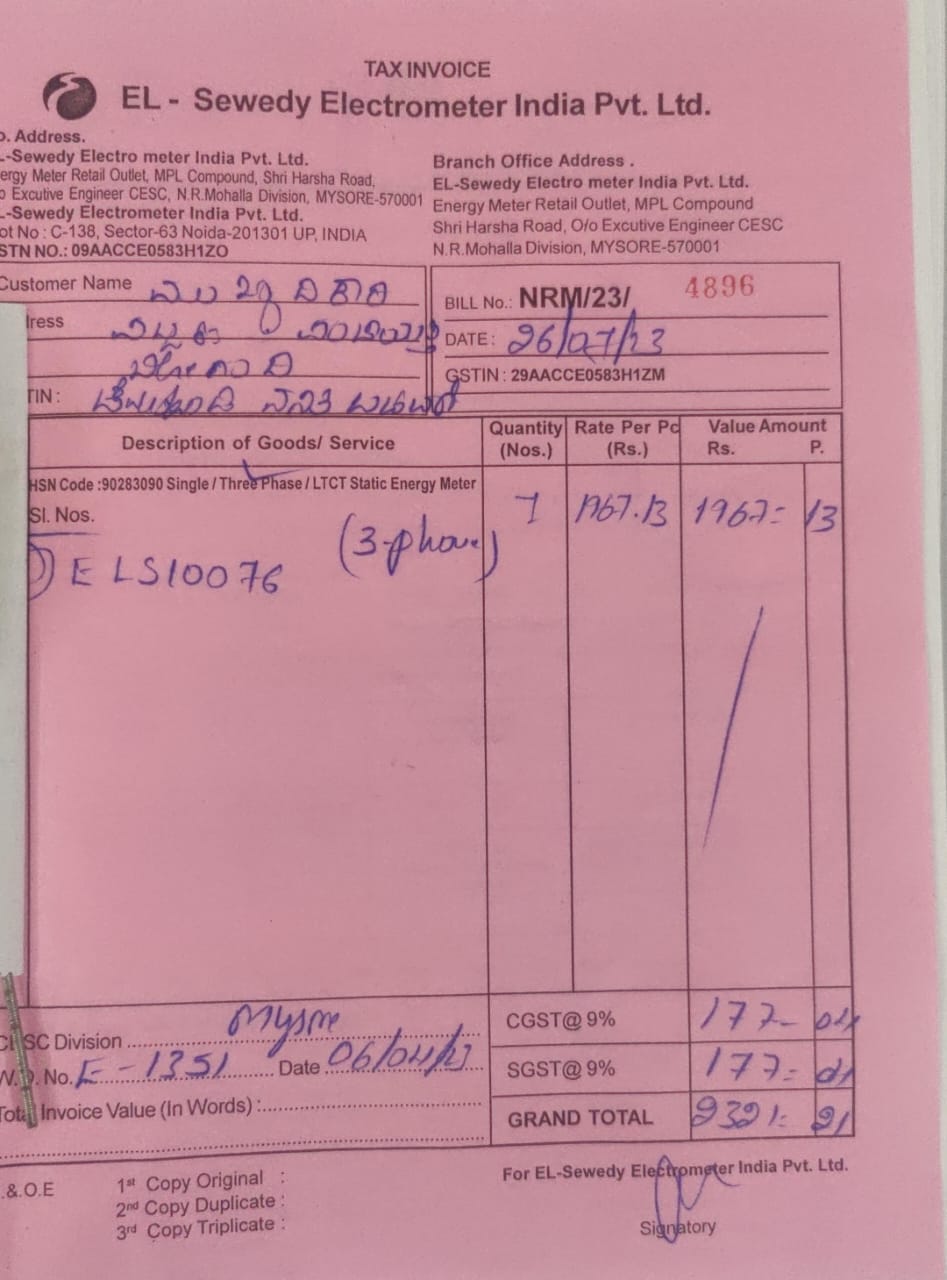 TAX INVOICE
EL - Sewedy Electrometer India Pvt. Ltd.
o. Address.
L-Sewedy Electro meter India Pvt. Ltd.
ergy Meter Retail Outlet, MPL Compound, Shri Harsha Road,
o Excutive Engineer CESC, N.R.Mohalla Division, MYSORE-570001
L-Sewedy Electrometer India Pvt. Ltd.
ot No : C-138, Sector-63 Noida-201301 UP, INDIA
STN NO.: 09AACCE0583H1ZO
Branch Office Address .
EL-Sewedy Electro meter India Pvt. Ltd.
Energy Meter Retail Outlet, MPL Compound
Shri Harsha Road, O/o Excutive Engineer CESC
N.R.Mohalla Division, MYSORE-570001
Customer Name
ress
TIN :
BILL No.: NRM/23/ 4896
DATE : 26/07/23
GSTIN : 29AACCE0583H1ZM
Description of Goods/ Service Quantity (Nos.) Rate Per Pc (Rs.) Value Amount Rs. P.
HSN Code :90283090 Single / Three Phase / LTCT Static Energy Meter
Sl. Nos. (3-phase) 1 1967.13 1967= 13
1) ELS10076
CESC Division Mysore
W.O. No. E-1351 Date
Total Invoice Value (In Words) :
CGST@ 9% 177- 04
SGST@ 9% 177= 04
GRAND TOTAL 2321= 21
.&.O.E
1st Copy Original :
2nd Copy Duplicate :
3rd Copy Triplicate :
For EL-Sewedy Electrometer India Pvt. Ltd.
Signatory